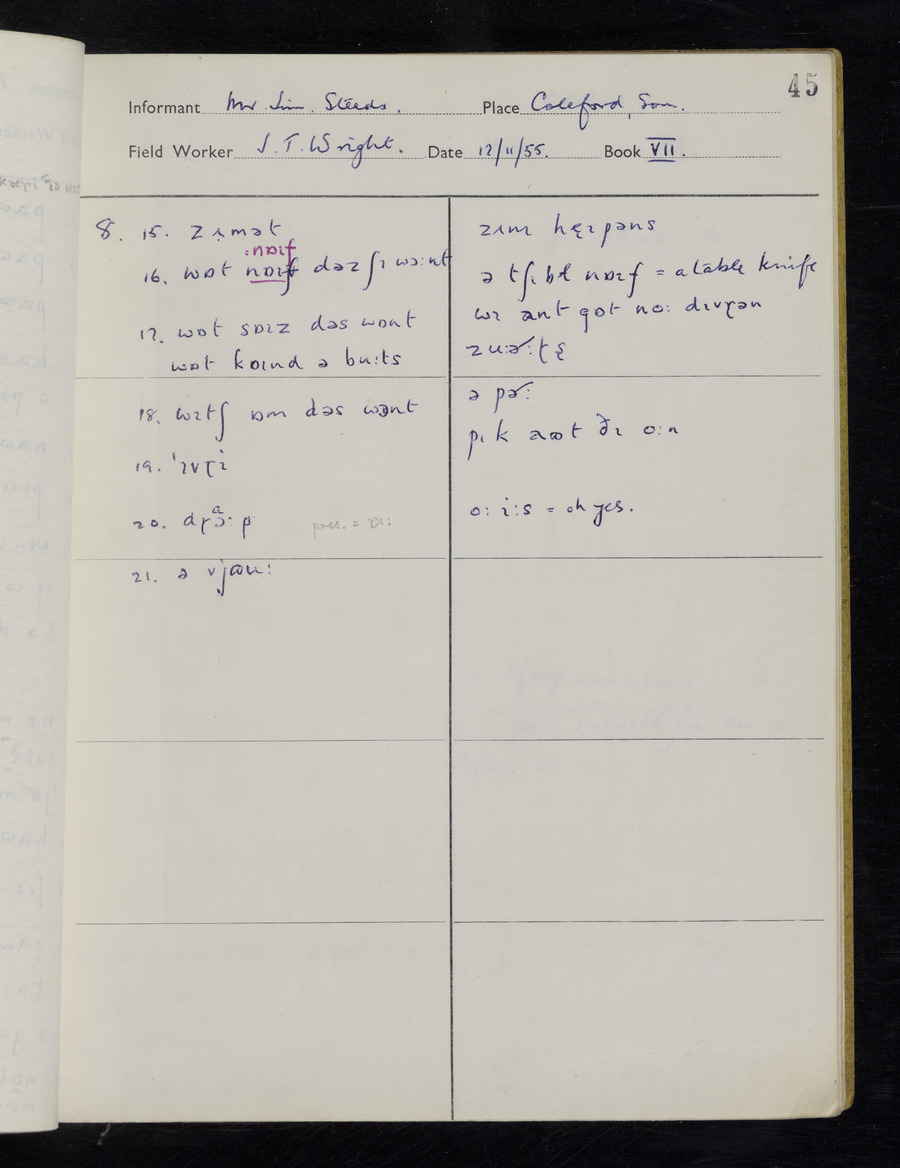 45
Informant Mr Jim. Steeds. Place Coleford, Som.
Field Worker J. T. Wright. Date 12/11/55. Book VII.
8. 15. zɪ̣mət
:nɒɪf
16. wɒt nɒɪf dəz ʃɪ wɔːnt
17. wɒt sɒɪz dəs wɒnt
wɒt kɒɪnd ə buːts
18. wɪtʃ ɒm dəs wɒnt
19. ˈɪvɽi
20. dɽɔ̃ːp pres. = ɒː
21. ə vjɒuː
zɪm hɛɽpəns
ə tʃɪbɫ nɒɪf = a table knife
wɪ ant gɒt noː dɪvɽən
ə pɚː
pɪk aʊt ðɪ oːn
oː iːs = oh yes.